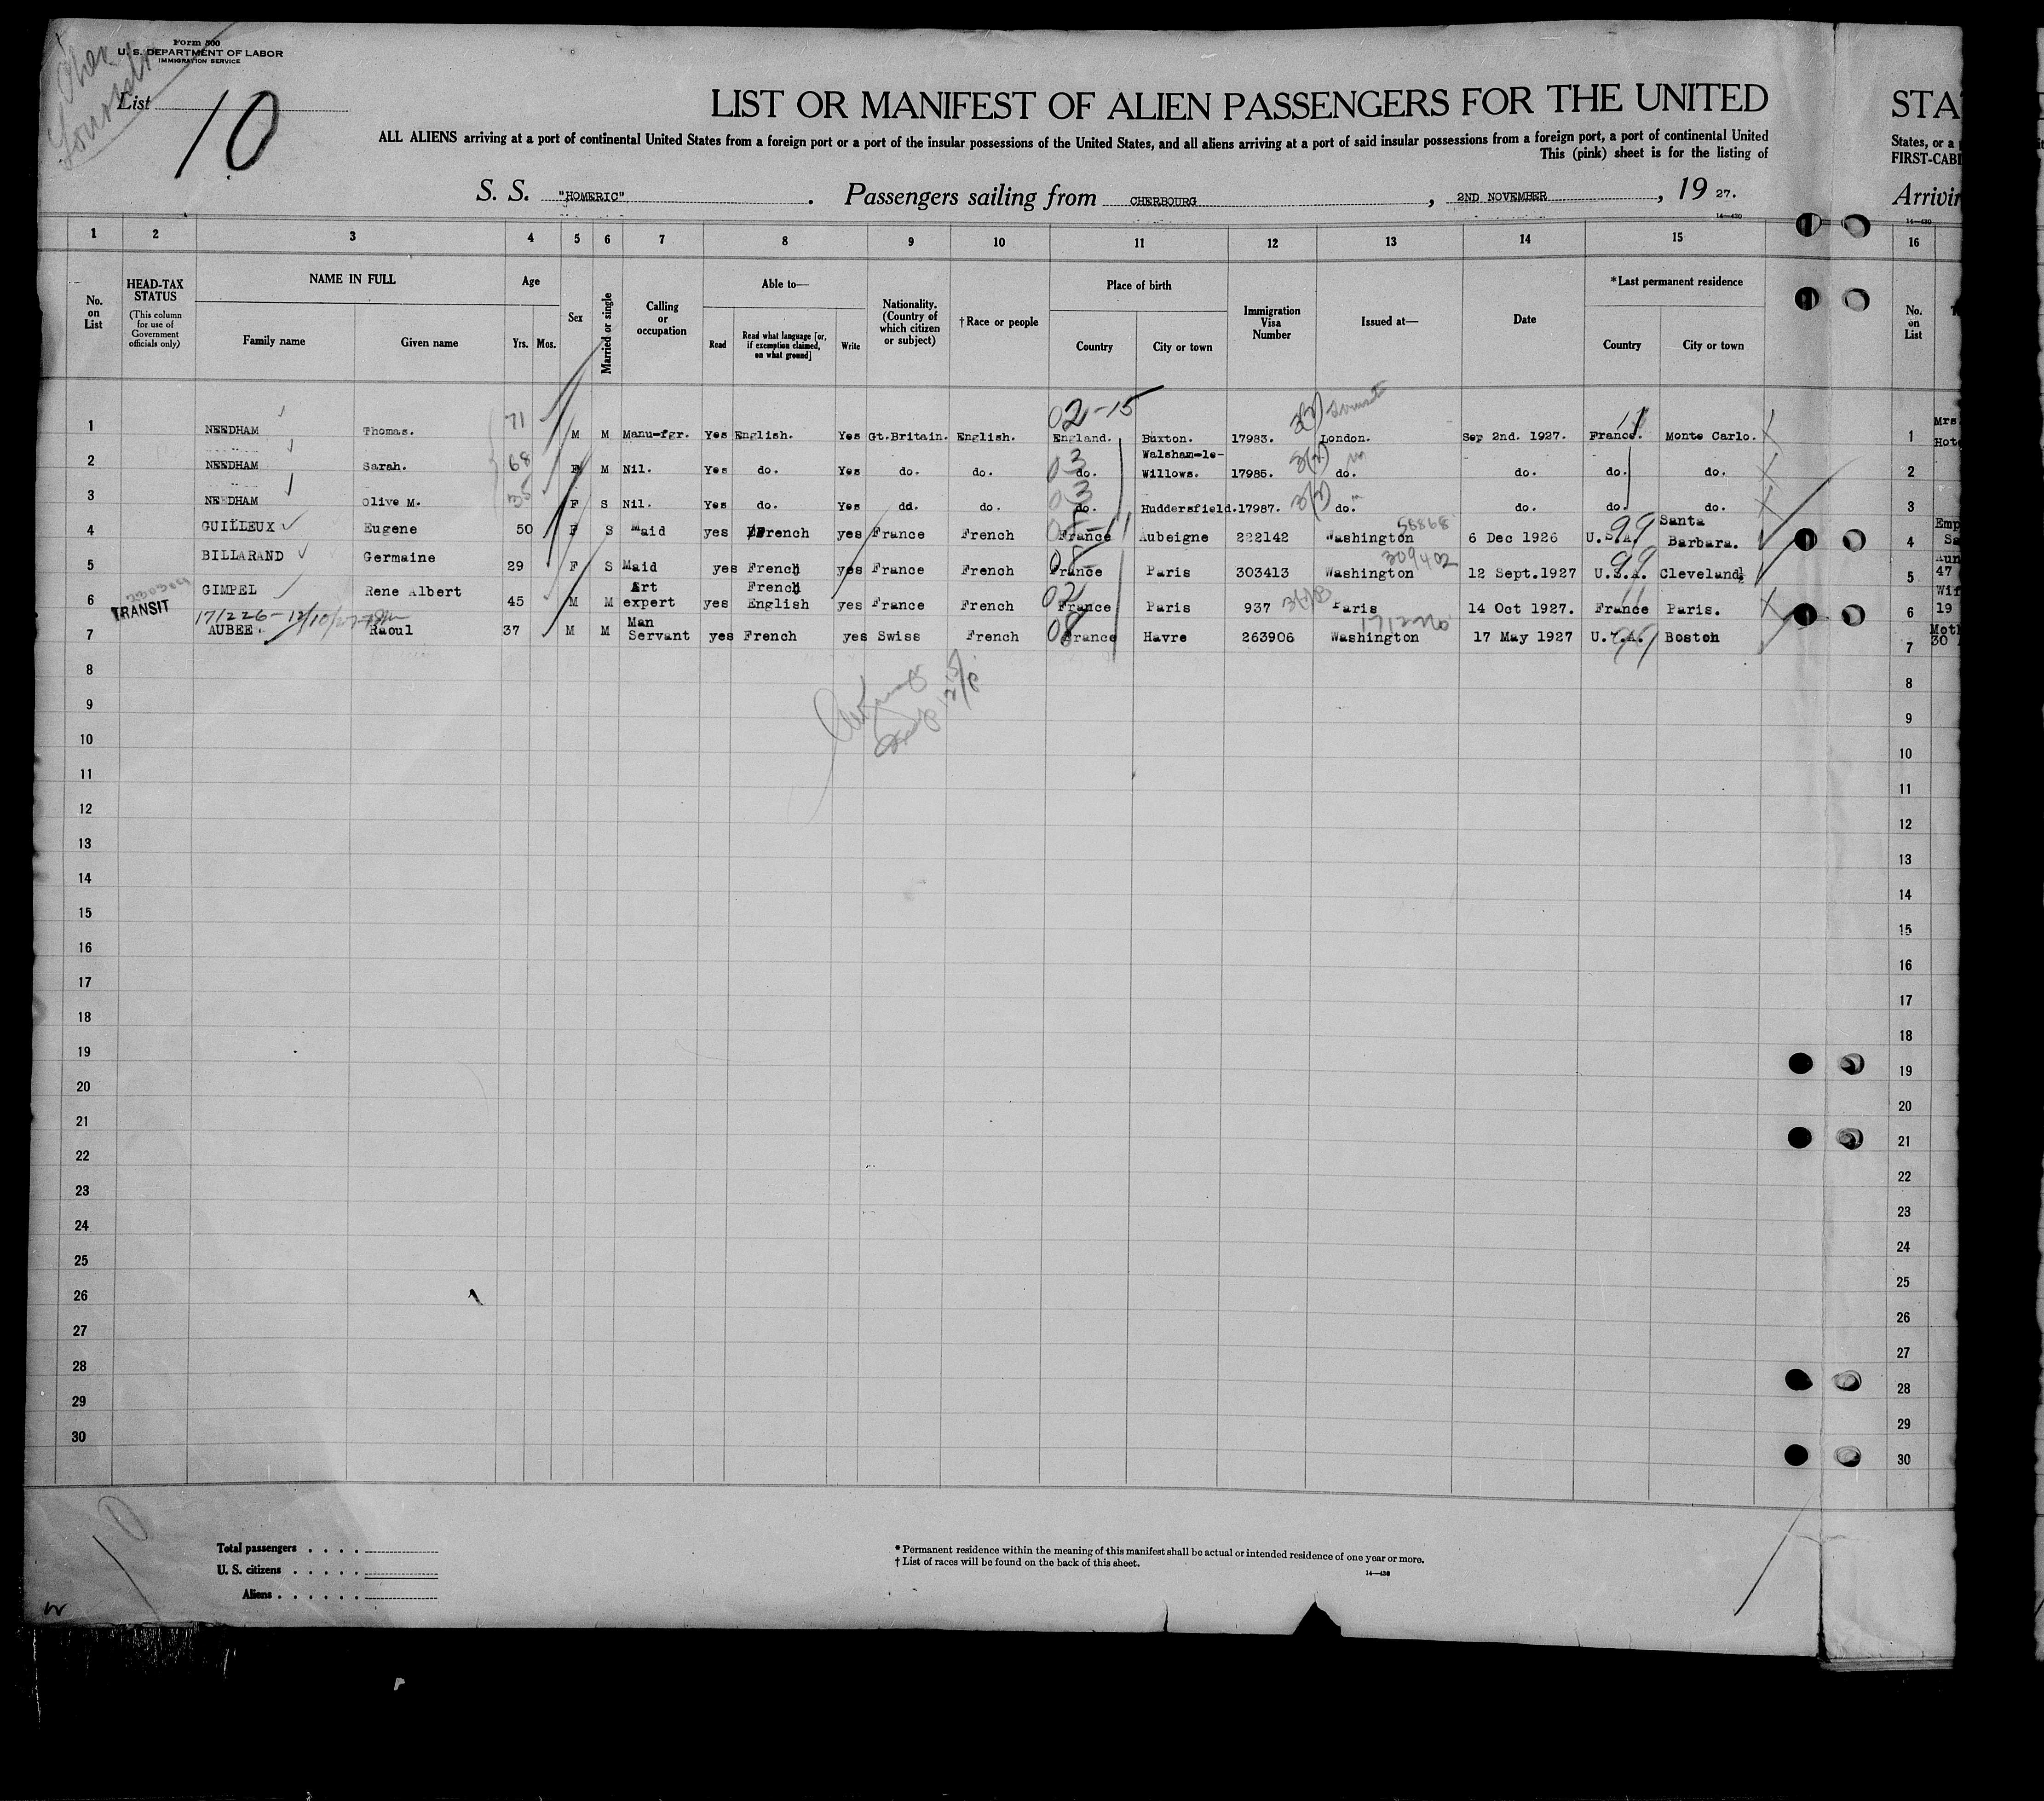 Form 500
U. S. DEPARTMENT OF LABOR
IMMIGRATION SERVICE
List 10
LIST OR MANIFEST OF ALIEN PASSENGERS FOR THE UNITED
STA
ALL ALIENS arriving at a port of continental United States from a foreign port or a port of the insular possessions of the United States, and all aliens arriving at a port of said insular possessions from a foreign port, a port of continental United
States, or a
This (pink) sheet is for the listing of
FIRST-CABI
S. S. "HOMERIC". Passengers sailing from CHERBOURG, 2ND NOVEMBER, 19 27.
Arrivin
14—430
14—430
1 2 3 4 5 6 7 8 9 10 11 12 13 14 15 16
No. on List
HEAD-TAX STATUS (This column for use of Government officials only)
NAME IN FULL
Family name Given name
Age
Yrs. Mos.
Sex
Married or single
Calling or occupation
Able to—
Read
Read what language [or, if exemption claimed, on what ground]
Write
Nationality. (Country of which citizen or subject)
†Race or people
Place of birth
Country City or town
Immigration Visa Number
Issued at—
Date
*Last permanent residence
Country City or town
No. on List
02-15
1 NEEDHAM Thomas. 71 M M Manu-fgr. Yes English. Yes Gt.Britain. English. England. Buxton. 17983. London. Sep 2nd. 1927. France. Monte Carlo. 1 Mrs Hote
2 NEEDHAM Sarah. 68 F M Nil. Yes do. Yes do. do. do. Walsham-le-Willows. 17985. do. do. do. do. 2
3 NEEDHAM Olive M. 35 F S Nil. Yes do. Yes dd. do. do. Huddersfield. 17987. do. do. do. do. 3
4 GUILLEUX Eugene 50 F S Maid yes French yes France French France Aubeigne 222142 Washington 56868 6 Dec 1926 U.S.A. 99 Santa Barbara. 4 Emp Sa
5 BILLARAND Germaine 29 F S Maid yes French yes France French France Paris 303413 Washington 309402 12 Sept.1927 U.S.A. 99 Cleveland 5 Aun 47
6 TRANSIT GIMPEL Rene Albert 45 M M Art expert yes French English yes France French 02 France Paris 937 Paris 14 Oct 1927. France Paris. 6 Wif 19
17/226-12/10/27
7 AUBEE. Raoul 37 M M Man Servant yes French yes Swiss French 08 France Havre 263906 Washington 17 May 1927 U.S.A. 99 Boston 7 Moth 30
8 8
9 9
10 10
11 11
12 12
13 13
14 14
15 15
16 16
17 17
18 18
19 19
20 20
21 21
22 22
23 23
24 24
25 25
26 26
27 27
28 28
29 29
30 30
10
Total passengers . . . .
U. S. citizens . . . . .
Aliens . . . . . .
* Permanent residence within the meaning of this manifest shall be actual or intended residence of one year or more.
† List of races will be found on the back of this sheet.
14—430